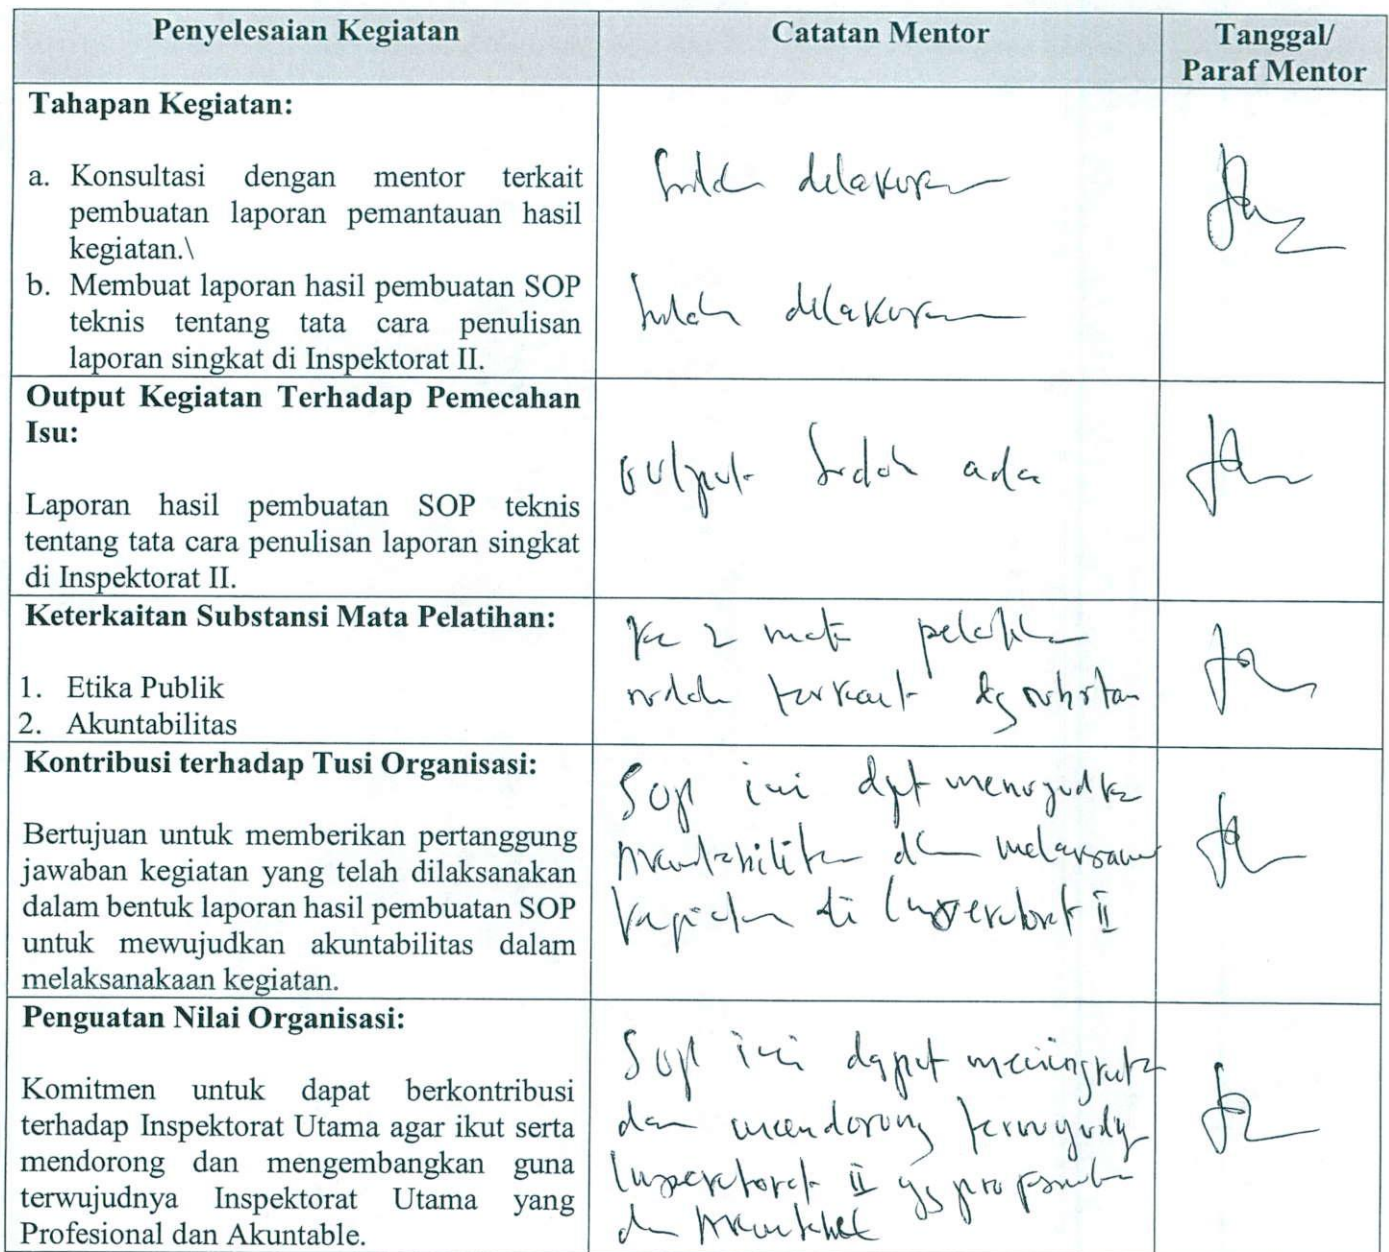 Penyelesaian Kegiatan
Catatan Mentor
Tanggal/
Paraf Mentor
Tahapan Kegiatan:
a. Konsultasi dengan mentor terkait
pembuatan laporan pemantauan hasil
kegiatan.\
b. Membuat laporan hasil pembuatan SOP
teknis tentang tata cara penulisan
laporan singkat di Inspektorat II.
Sudah dilakukan
Sudah dilakukan
Output Kegiatan Terhadap Pemecahan
Isu:
Laporan hasil pembuatan SOP teknis
tentang tata cara penulisan laporan singkat
di Inspektorat II.
Output sudah ada
Keterkaitan Substansi Mata Pelatihan:
1. Etika Publik
2. Akuntabilitas
Ke 2 mata pelatihan
sudah terkait dg substan
Kontribusi terhadap Tusi Organisasi:
Bertujuan untuk memberikan pertanggung
jawaban kegiatan yang telah dilaksanakan
dalam bentuk laporan hasil pembuatan SOP
untuk mewujudkan akuntabilitas dalam
melaksanakaan kegiatan.
SOP ini dpt
di Inspektorat II
Penguatan Nilai Organisasi:
Komitmen untuk dapat berkontribusi
terhadap Inspektorat Utama agar ikut serta
mendorong dan mengembangkan guna
terwujudnya Inspektorat Utama yang
Profesional dan Akuntable.
SOP ini dapat
dan mendorong
Inspektorat II yg